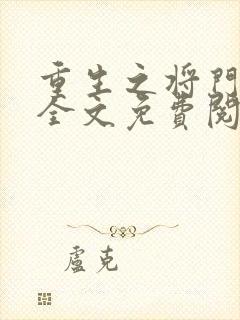 重生之将門
全文免費閱
盧克